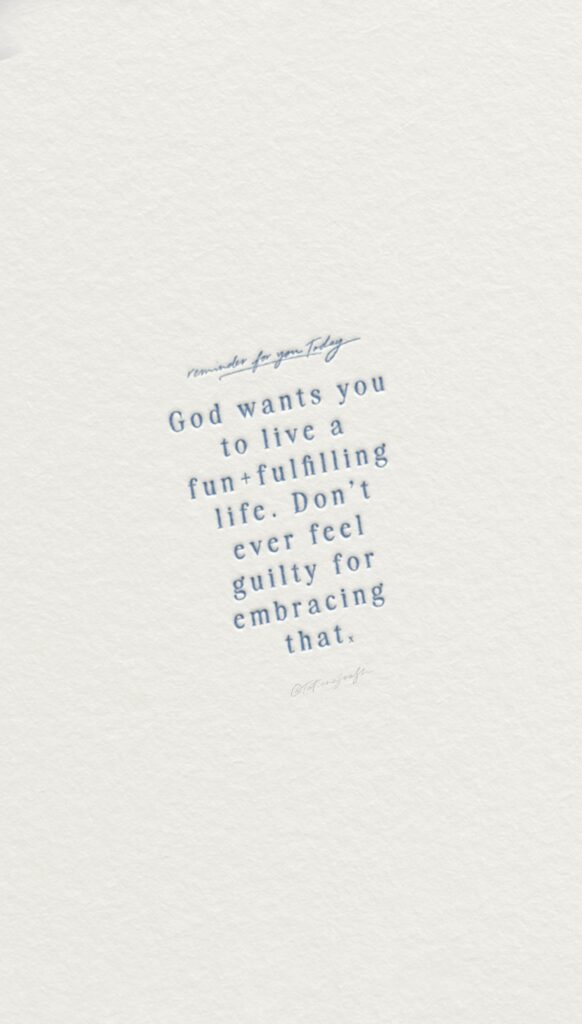 reminder for you Today
God wants you
to live a
fun+fulfilling
life. Don't
ever feel
guilty for
embracing
that.x